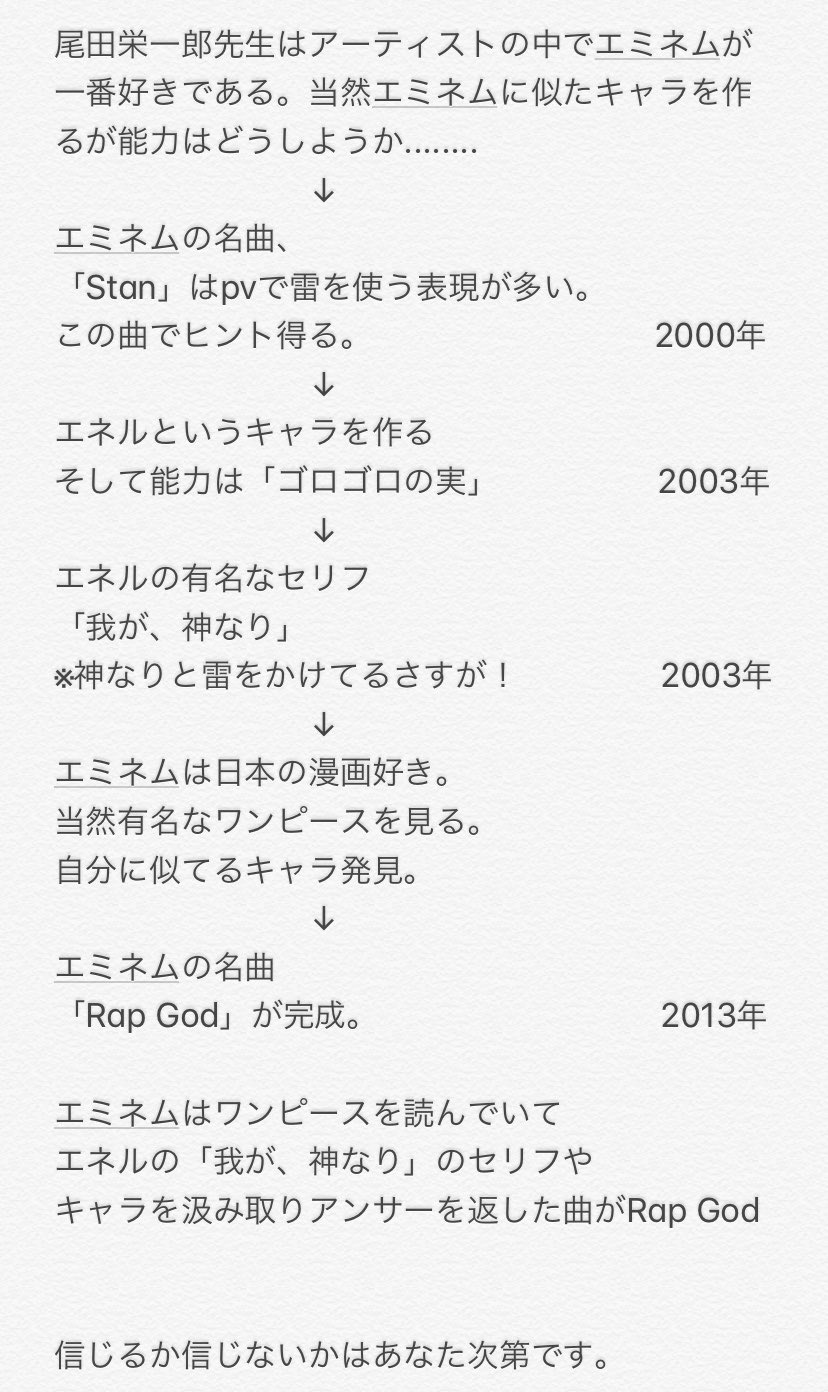 尾田栄一郎先生はアーティストの中でエミネムが
一番好きである。当然エミネムに似たキャラを作
るが能力はどうしようか........
↓
エミネムの名曲、
「Stan」はpvで雷を使う表現が多い。
この曲でヒント得る。 2000年
↓
エネルというキャラを作る
そして能力は「ゴロゴロの実」 2003年
↓
エネルの有名なセリフ
「我が、神なり」
※神なりと雷をかけてるさすが！ 2003年
↓
エミネムは日本の漫画好き。
当然有名なワンピースを見る。
自分に似てるキャラ発見。
↓
エミネムの名曲
「Rap God」が完成。 2013年
エミネムはワンピースを読んでいて
エネルの「我が、神なり」のセリフや
キャラを汲み取りアンサーを返した曲がRap God
信じるか信じないかはあなた次第です。